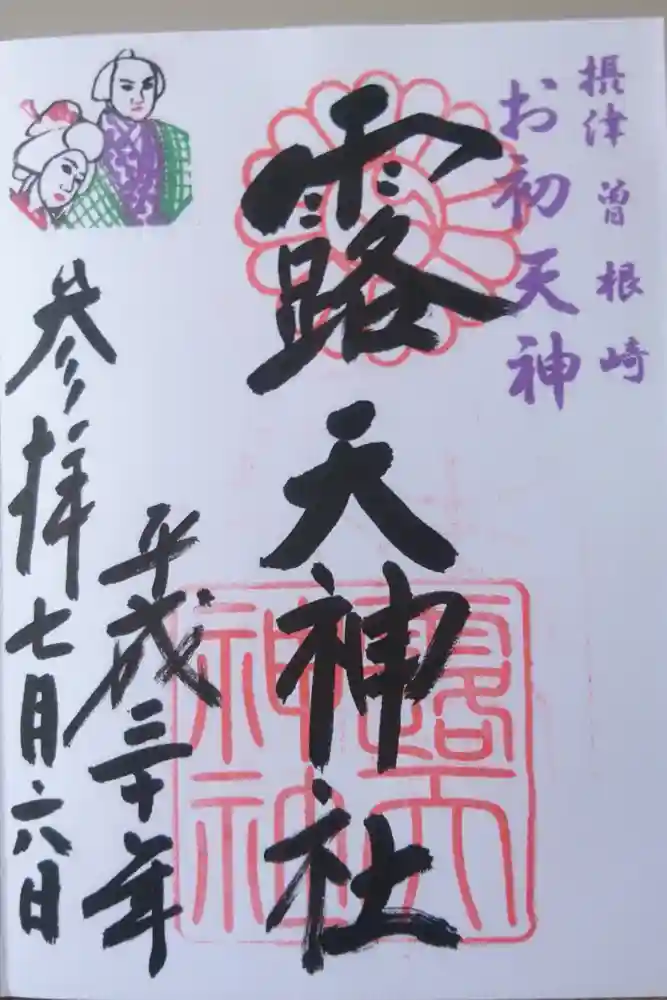 摂津 曽根崎
お初天神
露天神社
平成三十年
参拝七月六日
露天
神社